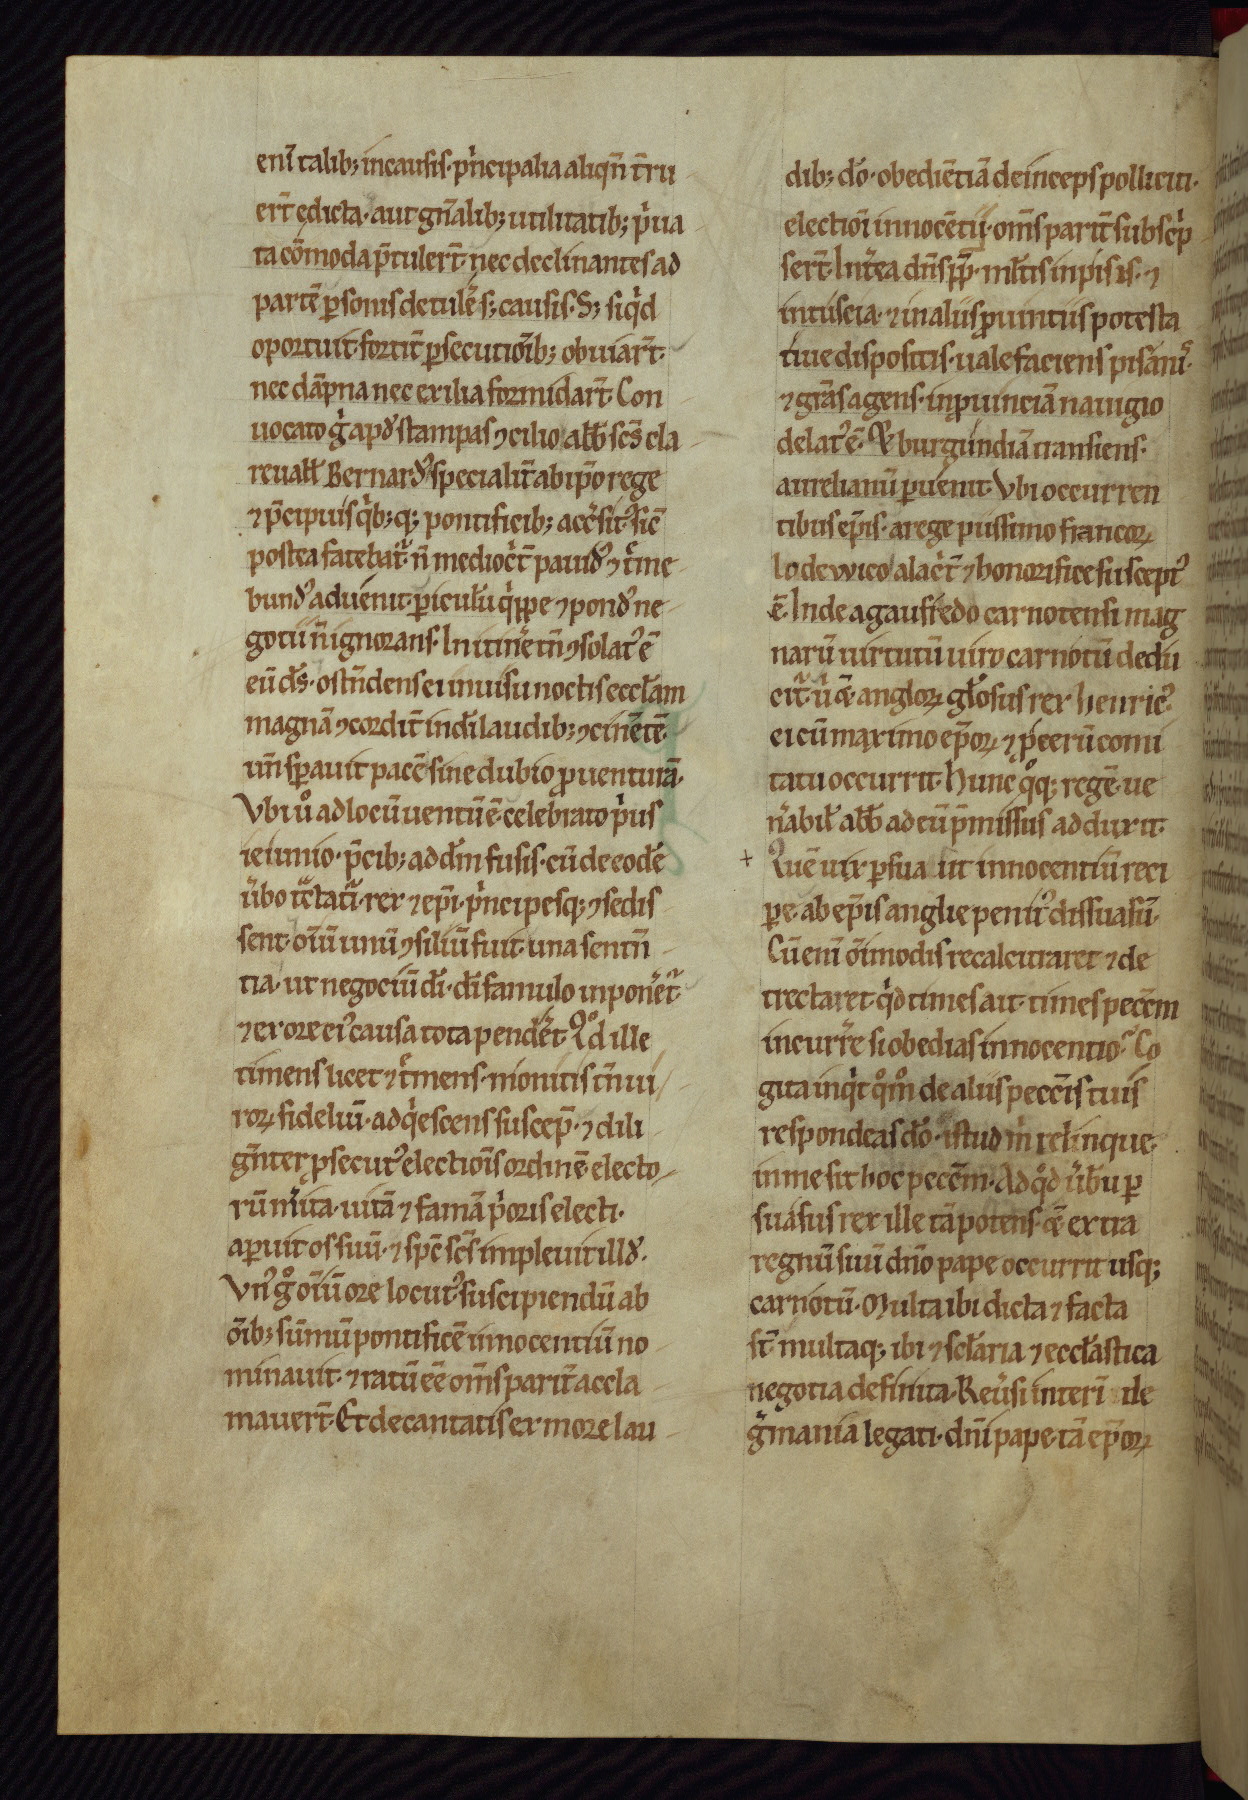 eni̅ talib; in causis· pͥncipalia aliqn̅ t̅ru
er̅t edicta· aut gn̅alib; utilitatib; pͥua
ta co̅moda p̅tulert̅· nec declinantes ad
parte̅ ꝑsonis detule̅ s; causis· S; siqͥd
oportuit· fortit̅ ꝑsecutio̅ib; obuiar̅t·
nec da̅pna nec exilia formidar̅t· Con
uocato gͥ apd̾ stampas ꝯcilio abb̅ sc̅s cla
reuall̅ Bernard᷒ specialit̅ ab ip̅o rege
⁊ p̅cipuis qͥb;q; pontificib; acc̅sit᷒ sic̅
postea fatebat᷑ n̅ mediocͥt̅ pauid᷒ ⁊ tͥme
bund᷒ aduenit· ꝑiculu̅ qͥppe ⁊ pond᷒ ne
gotii n̅ ignorans· In itine̅ tn̅ ꝯsolat᷒ e̅
eu̅ ds̅· ostn̅dens ei in uisu noctis eccl̅am
magna̅ ꝯcordit̅ in di̅ laudib; ꝯcine̅te̅·
un̅ sꝑauit pace̅ sine dubio ꝓuentura̅·
Vbi uͦ ad locu̅ uentu̅ e̅· celebrato pͥus
ieiunio· p̅cib; ad dm̅ fusis· cu̅ de eode̅
u̅bo t̅ctati· rex ⁊ ep̅i· pͥncipesq; ꝯsedis
sent· oi̅u̅ unu̅ ꝯsiliu̅ fuit· una sentn̅
tia· ut negociu̅ di̅· di̅ famulo inpone̅t᷑·
⁊ ex ore ei᷒ causa tota pende̅t· Qd̾ ille
timens licet ⁊ tͥmens· monitis tn̅ ui
roꝝ fideliu̅· adqͥescens suscep̅· ⁊ dili
gn̅ter ꝓsecut᷒ electio̅is ordine̅· electo
ru̅ m̅ita· uita̅ ⁊ fama̅ pͥoris electi·
aꝑuit os suu̅· ⁊ spc̅ sc̅s impleuit illd᷒·
Vn᷒ gͦ oi̅u̅ ore locut᷒ suscipiendu̅ ab
o̅ib; su̅mu̅ pontifice̅ innocentiu̅ no
minauit· ⁊ ratu̅ ee̅ om̅s parit̅ accla
mauer̅t· Et decantatis ex more lau
dib; do̅· obedie̅tia̅ deinceps polliciti·
electio̅i innoce̅tij· om̅s parit̅ subscͥp
sert̅· Int̅ea dn̅s pp̅· ml̅tis in pisis· ⁊
in tuscia· ⁊ in aliis ꝓuintiis potesta
tiue dispositis· uale faciens pisani̅·
⁊ gr̅as agens· in ꝓuincia̅ nauigio
delat᷒ e̅· ꝑ burgundia̅ transiens·
aurelianu̅ ꝑuenit· Vbi occurren
tibus ep̅is· a rege piissimo francoꝝ
lodewico alacͥt̅ ⁊ honorifice suscept᷒
e̅· Inde a gaufredo carnotensi mag
naru̅ uirtutu̅ uiro carnotu̅ dedu
cit᷑ u̅ & angloꝝ gl̅osus rex henric᷒
ei cu̅ maximo ep̅oꝝ ⁊ pͥceru̅ comi
tatu occurrit· Hunc qͦq; rege̅· ue
n̅abil̅ abb̅ ad eu̅ p̅missus adduxit·
Que̅ uix ꝑsua it innocentiu̅ reci
pe̅· ab ep̅is anglie penit᷒ dissuasu̅·
Cu̅ eni̅ oi̅modis recalcitraret ⁊ de
trectaret· qͥd times ait· times pecc̅m
incurr̅e si obedias innocentio? Co
gita inqͥt qͦmͦ de aliis pecc̅is tuis
respondeas do̅· istud m̊ relinque·
in me sit hoc pecc̅m· Ad qͦd u̅bu̅ ꝑ
suasus rex ille ta̅ potens· & extra
regnu̅ suu̅ dn̅o pape occurrit usq;
carnotu̅· Multa ibi dicta ⁊ facta
st̅ multaq; ibi ⁊ scl̅aria ⁊ eccl̅astica
negotia definita· Reu̅si interi̅ de
g̅mania legati· dn̅i pape· ta̅ ep̅oꝝ